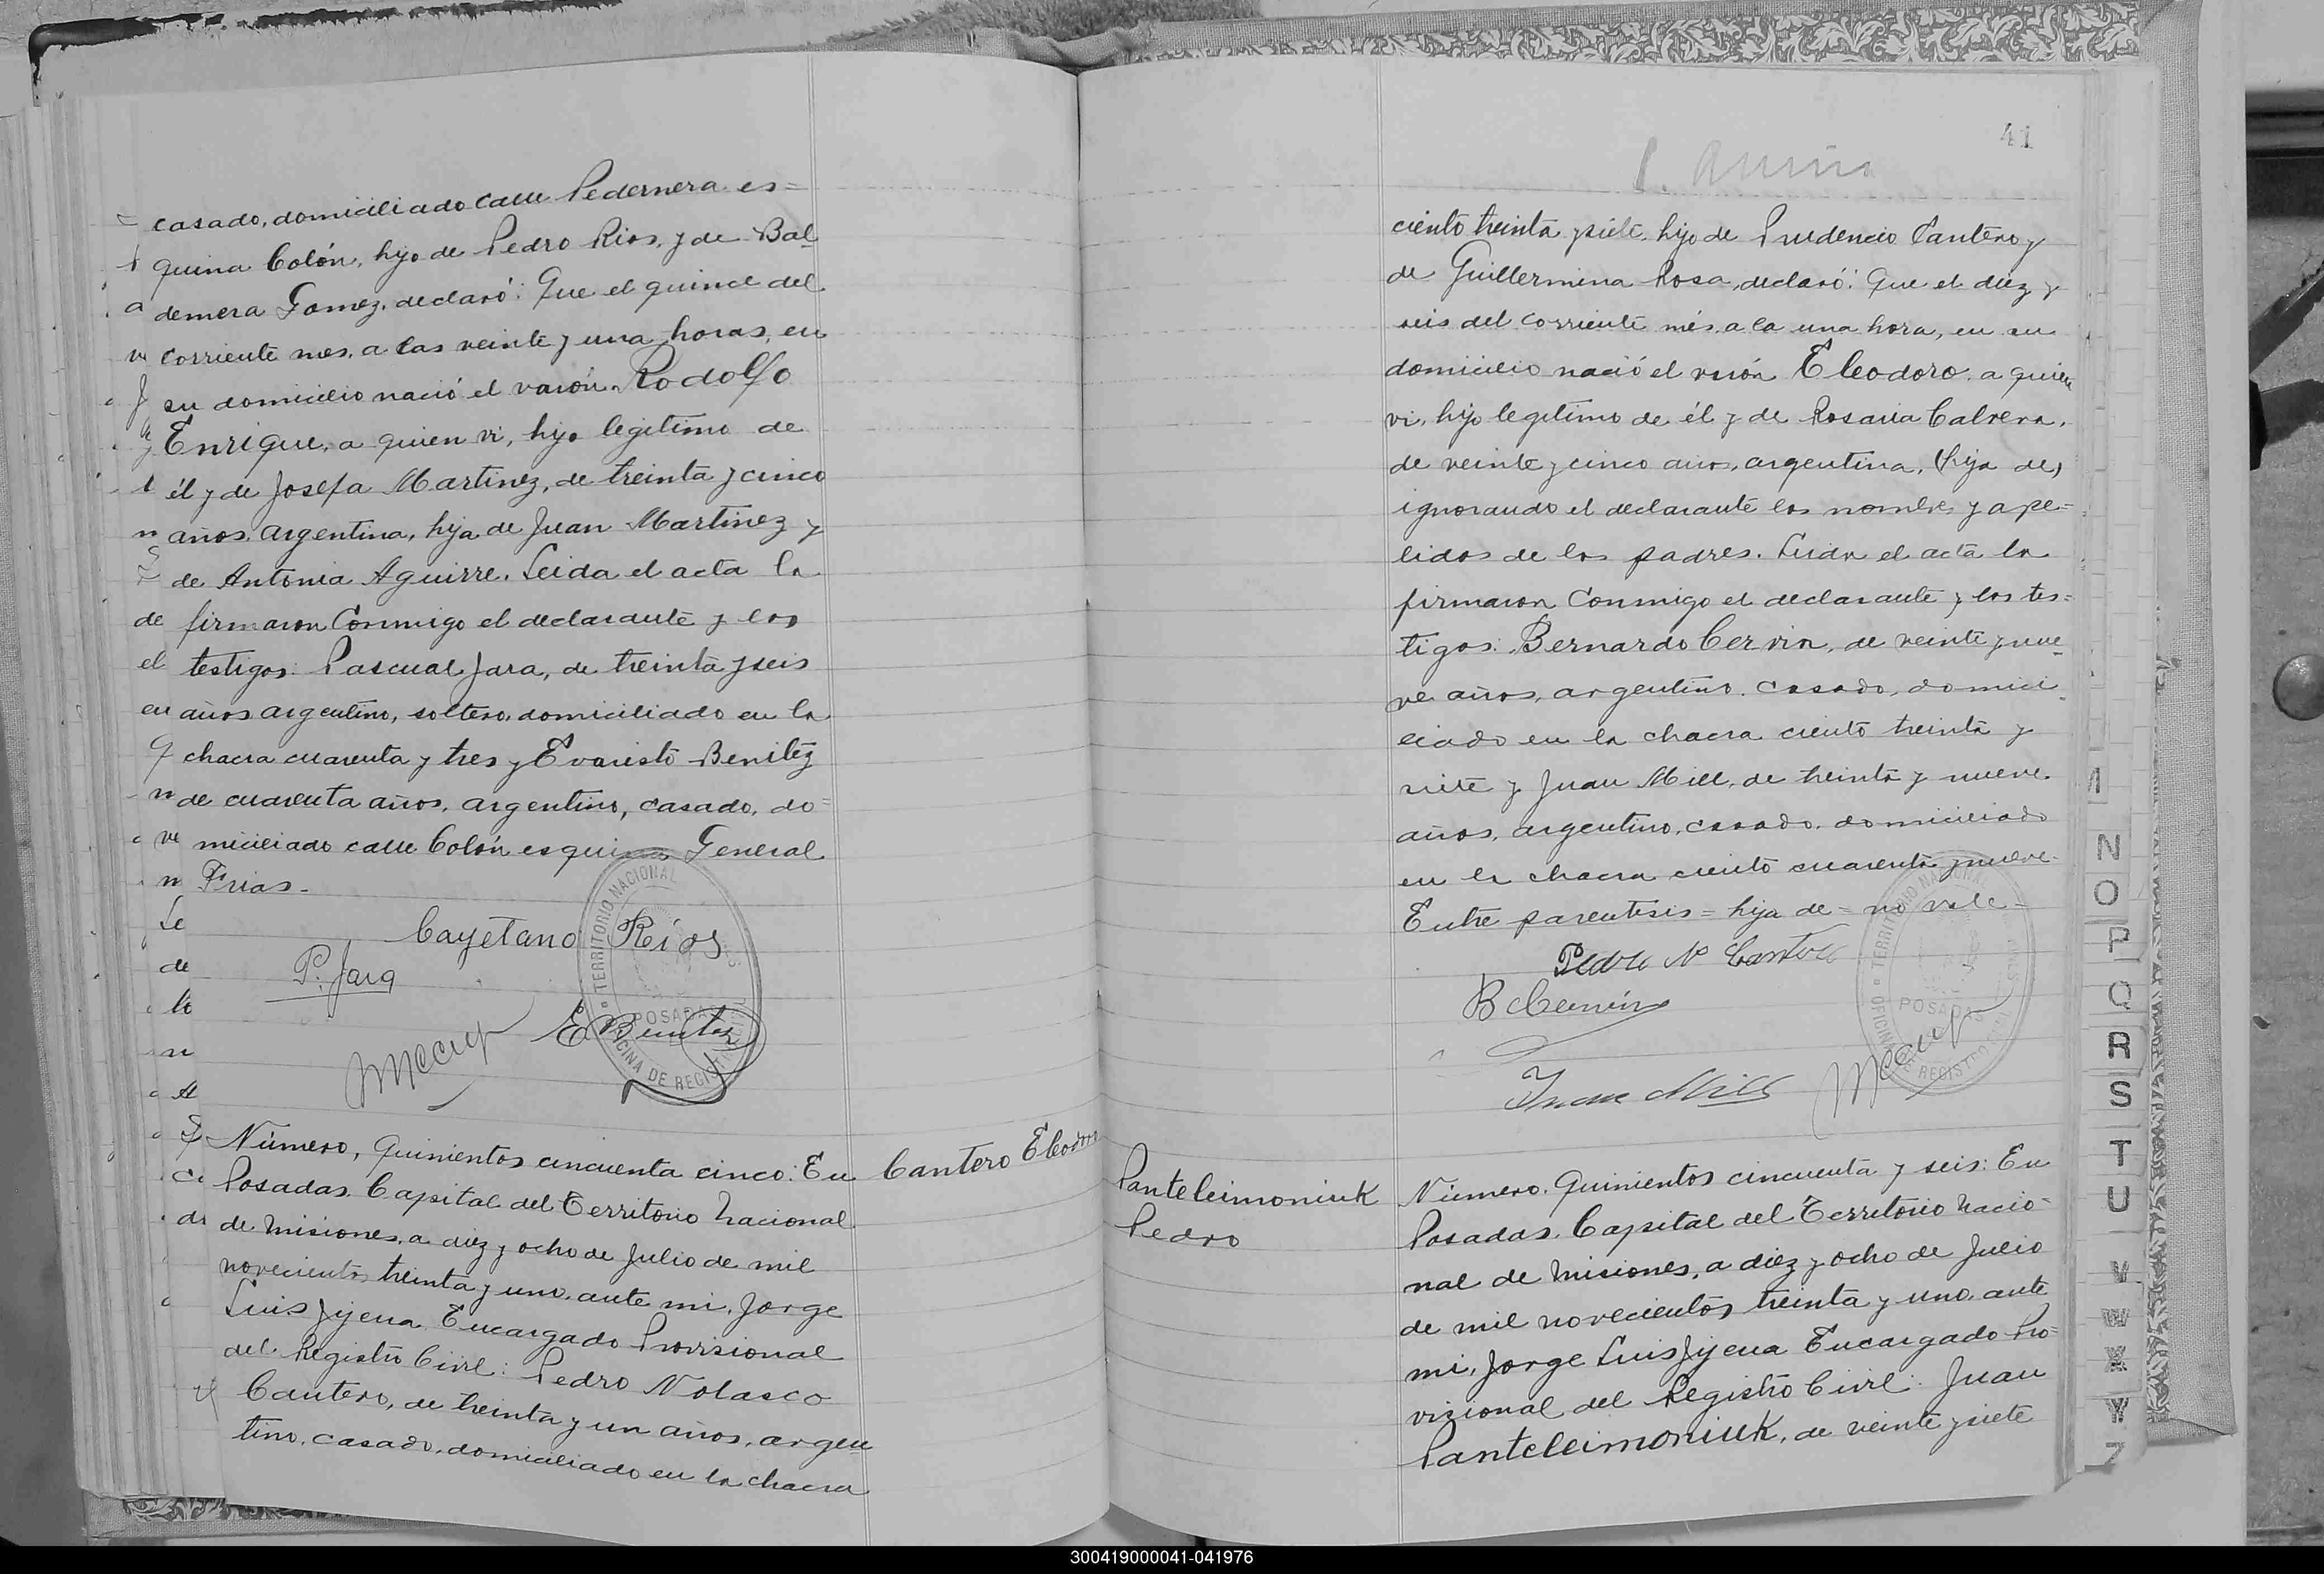 casado, domiciliado calle Pedernera es=
quina Colón, hijo de Pedro Rios, y de Bal
demera Gomez, declaró: Que el quince del
corriente mes, a las veinte y una horas, en
su domicilio nació el varón Rodolfo
Enrique, a quien vi, hijo legitimo de
él y de Josefa Martinez, de treinta y cinco
años, argentina, hija de Juan Martinez y
de Antonia Aguirre. Leida el acta la
firmaron conmigo el declarante y los
testigos: Pascual Jara, de treinta y seis
años, argentino, soltero, domiciliado en la
chacra cuarenta y tres y Evaristo Benitez
de cuarenta años, argentino, casado, do=
miciliado calle Colón esquina General
Frias.
Cayetano Ríos
P. Jara
E Benitez
TERRITORIO NACIONAL
POSADAS
OFICINA DE REGISTRO
Número, Quinientos cincuenta cinco: En
Posadas, Capital del Territorio Nacional
de Misiones, a diez y ocho de Julio de mil
novecientos treinta y uno, ante mi, Jorge
Luis Jijena Encargado Provisional
del Registro Civil: Pedro Nolasco
Cantero, de treinta y un años, argen
tino, casado, domiciliado en la chacra
Cantero Eleodoro
41
ciento treinta y siete, hijo de Prudencio Cantero y
de Guillermina Rosa, declaró: Que el diez y
seis del corriente més, a la una hora, en su
domicilio nació el varón Eleodoro, a quien
vi, hijo legitimo de él y de Rosaria Cabrera,
de veinte y cinco años, argentina, (hija de)
ignorando el declarante los nombres y ape=
lidos de los padres. Leida el acta la
firmaron conmigo el declarante y los tes=
tigos: Bernardo Cervin, de veinte y nue
ve años, argentino, casado, domici
liado en la chacra ciento treinta y
siete y Juan Mill, de treinta y nueve
años, argentino, casado, domiciliado
en la chacra ciento cuarenta y nueve.
Entre parentesis = hija de = no vale =
Pedro N Cantero
B Cervin
Juan Mill
TERRITORIO NACIONAL
POSADAS
OFICINA DE REGISTRO
Panteleimoniuk
Pedro
Número, Quinientos cincuenta y seis: En
Posadas, Capital del Territorio Nacio=
nal de Misiones, a diez y ocho de Julio
de mil novecientos treinta y uno, ante
mi, Jorge Luis Jijena Encargado Pro=
visional del Registro Civil: Juan
Panteleimoniuk, de veinte y siete
N
O
P
Q
R
S
T
U
V
W
X
Y
Z
300419000041-041976